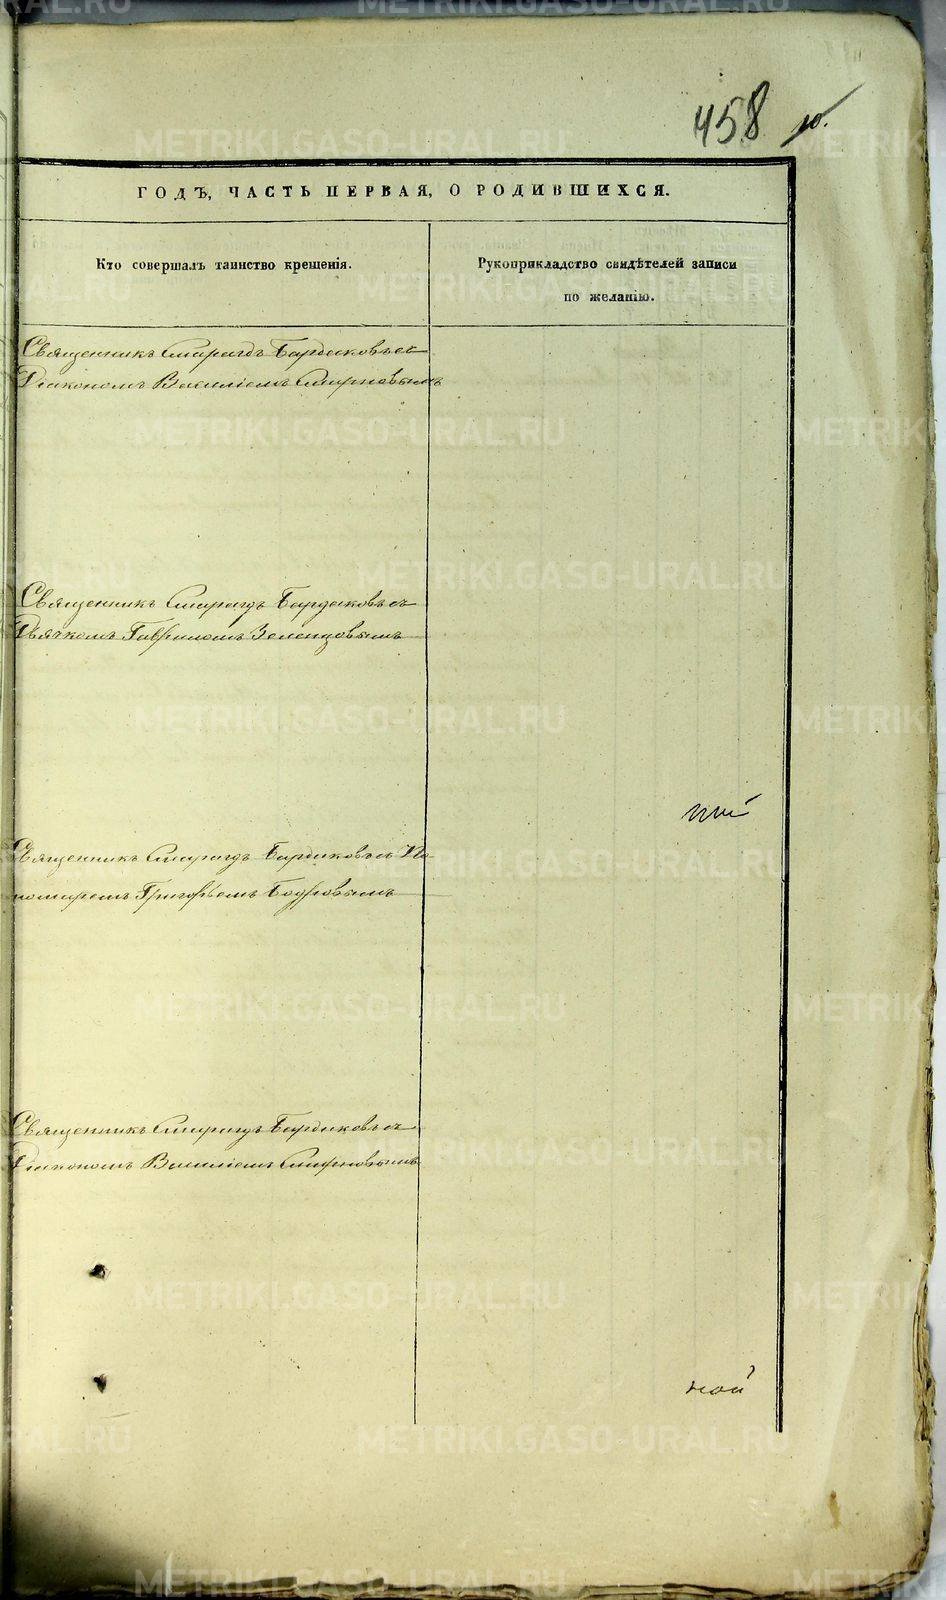 458
ГОДЪ, ЧАСТЬ ПЕРВАЯ, О РОДИВШИХСЯ.
Кто совершалъ таинство крещенія.
Рукоприкладство свидѣтелей записи
по желанію.
Священникъ Смарагдъ Бардаковъ съ
Діакономъ Василіемъ Смирновымъ
Священникъ Смарагдъ Бардаковъ съ
Дьячкомъ Гавриломъ Зеленцовымъ
Священникъ Смарагдъ Бардаковъ съ По
номаремъ Григорьемъ Бодровымъ
Священникъ Смарагдъ Бардаковъ съ
Діакономъ Василіемъ Смирновымъ
ной
METRIKI.GASO-URAL.RU